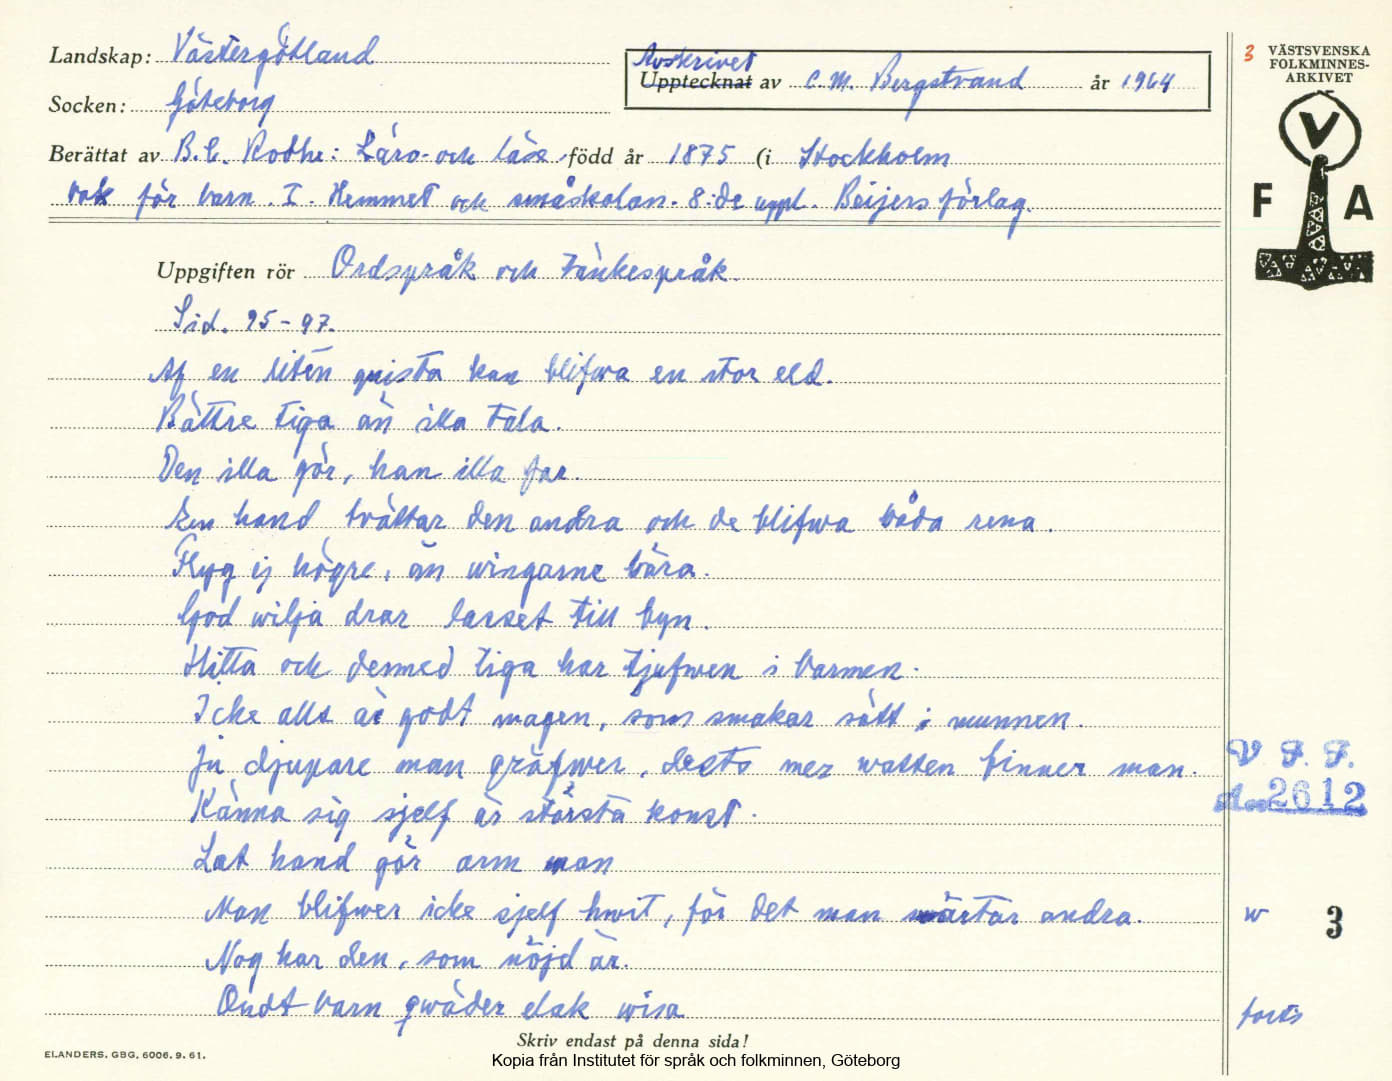 Landskap: Västergötland
Socken: Göteborg
Avskrivet
Upptecknat av C. M. Bergstrand år 1964
3 VÄSTSVENSKA
FOLKMINNES-
ARKIVET
V
F A
Berättat av B. C. Rodhe: Läro- och läse- född år 1875 (i Stockholm
bok för barn. I. Hemmet och småskolan. 8:de uppl. Beijers förlag.
Uppgiften rör Ordspråk och Tänkespråk.
Sid. 95-97.
Af en liten gnista kan blifwa en stor eld.
Bättre tiga än illa tala.
Den illa gör, han illa far.
En hand tvättar den andra och de blifwa båda rena.
Flyg ej högre, än wingarne bära.
God wilja drar lasset till byn.
Hitta och dermed tiga har tjufwen i barmen.
Icke allt är godt magen, som smakar sött i munnen.
Ju djupare man gräfwer, desto mer watten finner man.
Känna sig sjelf är största konst.
Lat hand gör arm man
Man blifwer icke sjelf hwit, för det man swärtar andra.
Nog har den, som nöjd är.
Ondt barn qwäder elak wisa
V. F. F.
A 2612
w 3
forts
Skriv endast på denna sida!
ELANDERS. GBG. 6006. 9. 61.
Kopia från Institutet för språk och folkminnen, Göteborg